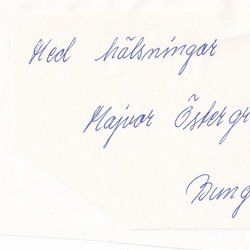 Med hälsningar
Majvor Östergr
Bung